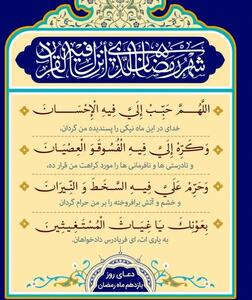 شهر رمضان الذي أنزل فيه القرآن
اللَّهُمَّ حَبِّبْ إِلَيَّ فِيهِ الْإِحْسَانَ
خدای در این ماه نیکی را پسندیده من گردان،
وَ كَرِّهْ إِلَيَّ فِيهِ الْفُسُوقَ وَ الْعِصْيَانَ
و نادرستی ها و نافرمانی ها را مورد کراهت من قرار ده،
وَ حَرِّمْ عَلَيَّ فِيهِ السَّخَطَ وَ النِّيرَانَ
و خشم و آتش برافروخته را بر من حرام گردان
بِعَوْنِكَ يَا غِيَاثَ الْمُسْتَغِيثِينَ
به یاری ات، ای فریادرس دادخواهان.
دعای روز
یازدهم ماه رمضان